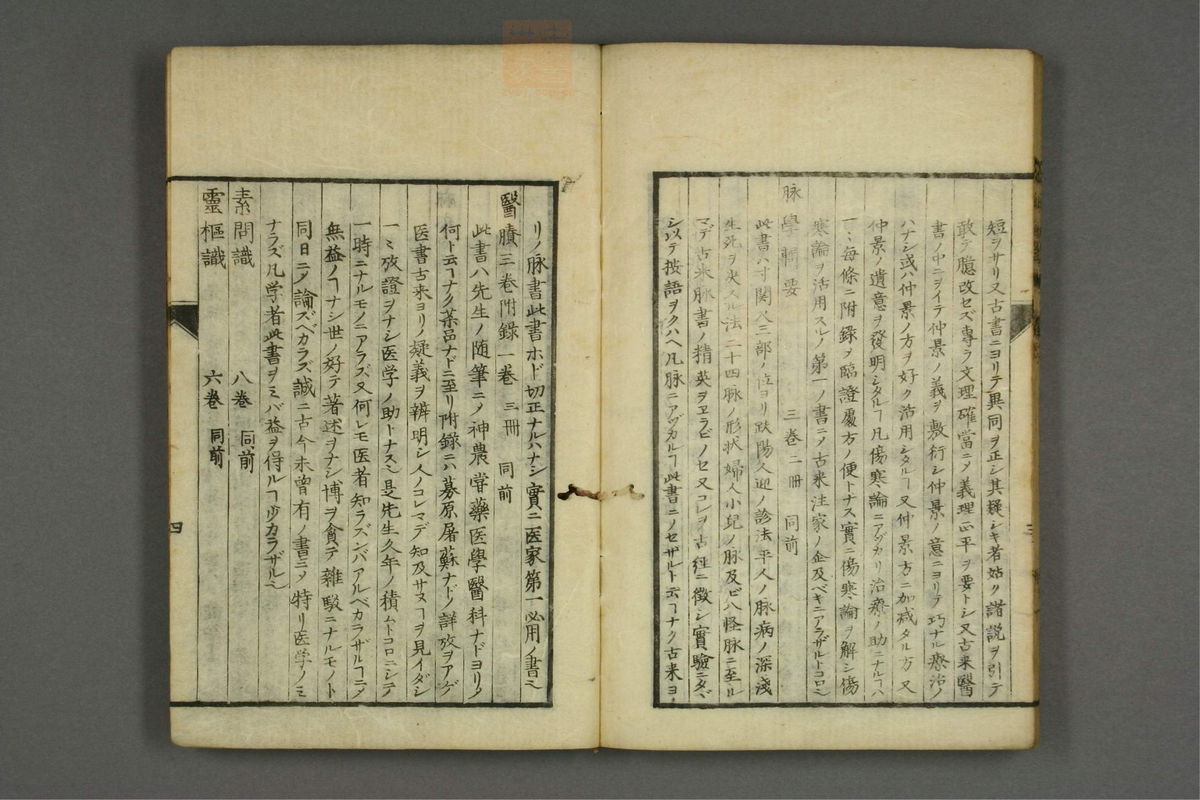 短ヲサリ又古書ニヨリテ異同ヲ正シ其疑シキ者姑ク諸説ヲ引テ
敢テ臆改セズ專ラ文理確當ニノ義理正平ヲ要トシ又古来醫
書中ニヲイテ仲景ノ義ヲ敷衍シ仲景ノ意ニヨリテ巧ナル療治ノ
ハナシ或ハ仲景ノ方ヲ好ク活用シタルヿ又仲景方ニ加減タル方又
仲景ノ遺意ヲ發明シタルヿ凡傷寒論ニアヅカリ治療ノ助ニナルヿハ
一〻每條ニ附録ヲ臨證處方ノ便トナス實ニ傷寒論ヲ解シ傷
寒論ヲ活用スルノ第一ノ書ニノ古来注家ノ企及ベキニアラザルトコロ
脉學輯要 三巻二冊 同前
此書ハ寸関尺三部ノ位ヨリ趺陽人迎ノ診法平人ノ脉病ノ深淺
生死ヲ决スル法二十四脉ノ形状婦人小児ノ脉及ビ八怪脉ニ至ル
マデ古来脉書ノ精英ヲヱラビノセ又コレヲ古經ニ徴シ實驗ニタヾ
シ以テ按語ヲクハヘ凡脉ニアヅカルヿ此書ニノセザルト云ヿナク古来ヨ
リノ脉書此書ホド切正ナルハナシ實ニ医家第一必用ノ書
醫賸三巻附録一巻 三冊 同前
此書ハ先生ノ随筆ニノ神農嘗藥医學醫科ナドヨリ
何ト云ヿナク菜品ナドニ至リ附録ニハ募原屠蘇ナドノ詳攷ヲアゲ
医書古来ヨリノ疑義ヲ辨明シ人ノコレマデ知及サヌヿヲ見イダシ
一〻攷證ヲナシ医学ノ助トナス是先生久年ノ積ムトコロニシテ
一時ニナルモノニアラズ又何レモ医者知ラズンバアルベカラザルヿニノ
無益ノヿナシ世ノ好テ著述ヲナシ博ヲ貪テ雜駁ニナルモノト
同日ニノ論ズベカラズ誠ニ古今未曾有ノ書ニノ特リ医学ノミ
ナラズ凡学者此書ヲミバ益ヲ得ルヿ少カラザル
素問識 八巻 同前
靈樞識 六巻 同前
四